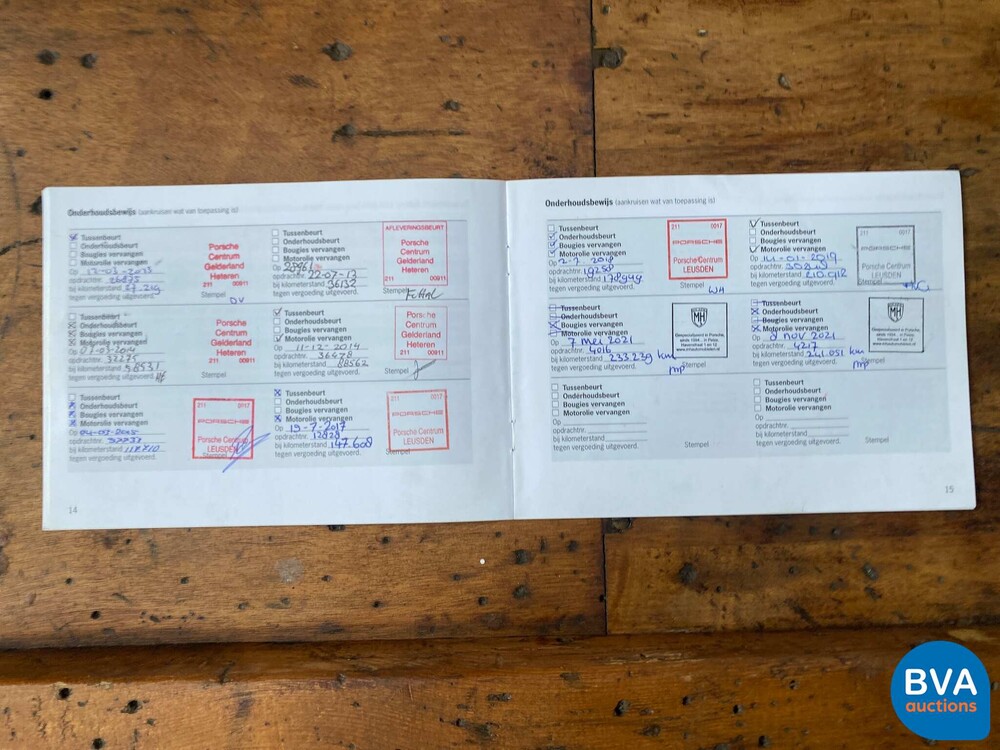 Onderhoudsbewijs (aankruisen wat van toepassing is)
Tussenbeurt
Onderhoudsbeurt
Bougies vervangen
Motorolie vervangen
Op
opdrachtnr.
bij kilometerstand
tegen vergoeding uitgevoerd.
Porsche
Centrum
Gelderland
Heteren
211 00911
Stempel
DV
Tussenbeurt
Onderhoudsbeurt
Bougies vervangen
Motorolie vervangen
Op
opdrachtnr. 22-07-13
bij kilometerstand 36132
tegen vergoeding uitgevoerd.
AFLEVERINGSBEURT
Porsche
Centrum
Gelderland
Heteren
211 00911
Stempel
Tussenbeurt
Onderhoudsbeurt
Bougies vervangen
Motorolie vervangen
Op
opdrachtnr. 37275
bij kilometerstand 58531
tegen vergoeding uitgevoerd.
Porsche
Centrum
Gelderland
Heteren
211 00911
Stempel
Tussenbeurt
Onderhoudsbeurt
Bougies vervangen
Motorolie vervangen
Op 11-12-2014
opdrachtnr. 36478
bij kilometerstand 88562
tegen vergoeding uitgevoerd.
Porsche
Centrum
Gelderland
Heteren
211 00911
Stempel
Tussenbeurt
Onderhoudsbeurt
Bougies vervangen
Motorolie vervangen
Op
opdrachtnr.
bij kilometerstand
tegen vergoeding uitgevoerd.
211 0017
PORSCHE
Porsche Centrum
LEUSDEN
Stempel
Tussenbeurt
Onderhoudsbeurt
Bougies vervangen
Motorolie vervangen
Op 19-7-2017
opdrachtnr.
bij kilometerstand 147.608
tegen vergoeding uitgevoerd.
211 0017
PORSCHE
Porsche Centrum
LEUSDEN
Stempel
14
Onderhoudsbewijs (aankruisen wat van toepassing is)
Tussenbeurt
Onderhoudsbeurt
Bougies vervangen
Motorolie vervangen
Op 2-7-2018
opdrachtnr. 19258
bij kilometerstand 178949
tegen vergoeding uitgevoerd.
211 0017
PORSCHE
Porsche Centrum
LEUSDEN
Stempel WH
Tussenbeurt
Onderhoudsbeurt
Bougies vervangen
Motorolie vervangen
Op 14-01-2019
opdrachtnr.
bij kilometerstand 210.912
tegen vergoeding uitgevoerd.
211 0017
PORSCHE
Porsche Centrum
LEUSDEN
Stempel
Tussenbeurt
Onderhoudsbeurt
Bougies vervangen
Motorolie vervangen
Op 7 mei 2021
opdrachtnr. 4016
bij kilometerstand 233.239 km
tegen vergoeding uitgevoerd.
MH
Stempel
MP
Tussenbeurt
Onderhoudsbeurt
Bougies vervangen
Motorolie vervangen
Op 8 nov 2021
opdrachtnr. 4217
bij kilometerstand 241.051 km
tegen vergoeding uitgevoerd.
MH
Stempel
MP
Tussenbeurt
Onderhoudsbeurt
Bougies vervangen
Motorolie vervangen
Op
opdrachtnr.
bij kilometerstand
tegen vergoeding uitgevoerd.
Stempel
Tussenbeurt
Onderhoudsbeurt
Bougies vervangen
Motorolie vervangen
Op
opdrachtnr.
bij kilometerstand
tegen vergoeding uitgevoerd.
Stempel
15
BVA
auctions